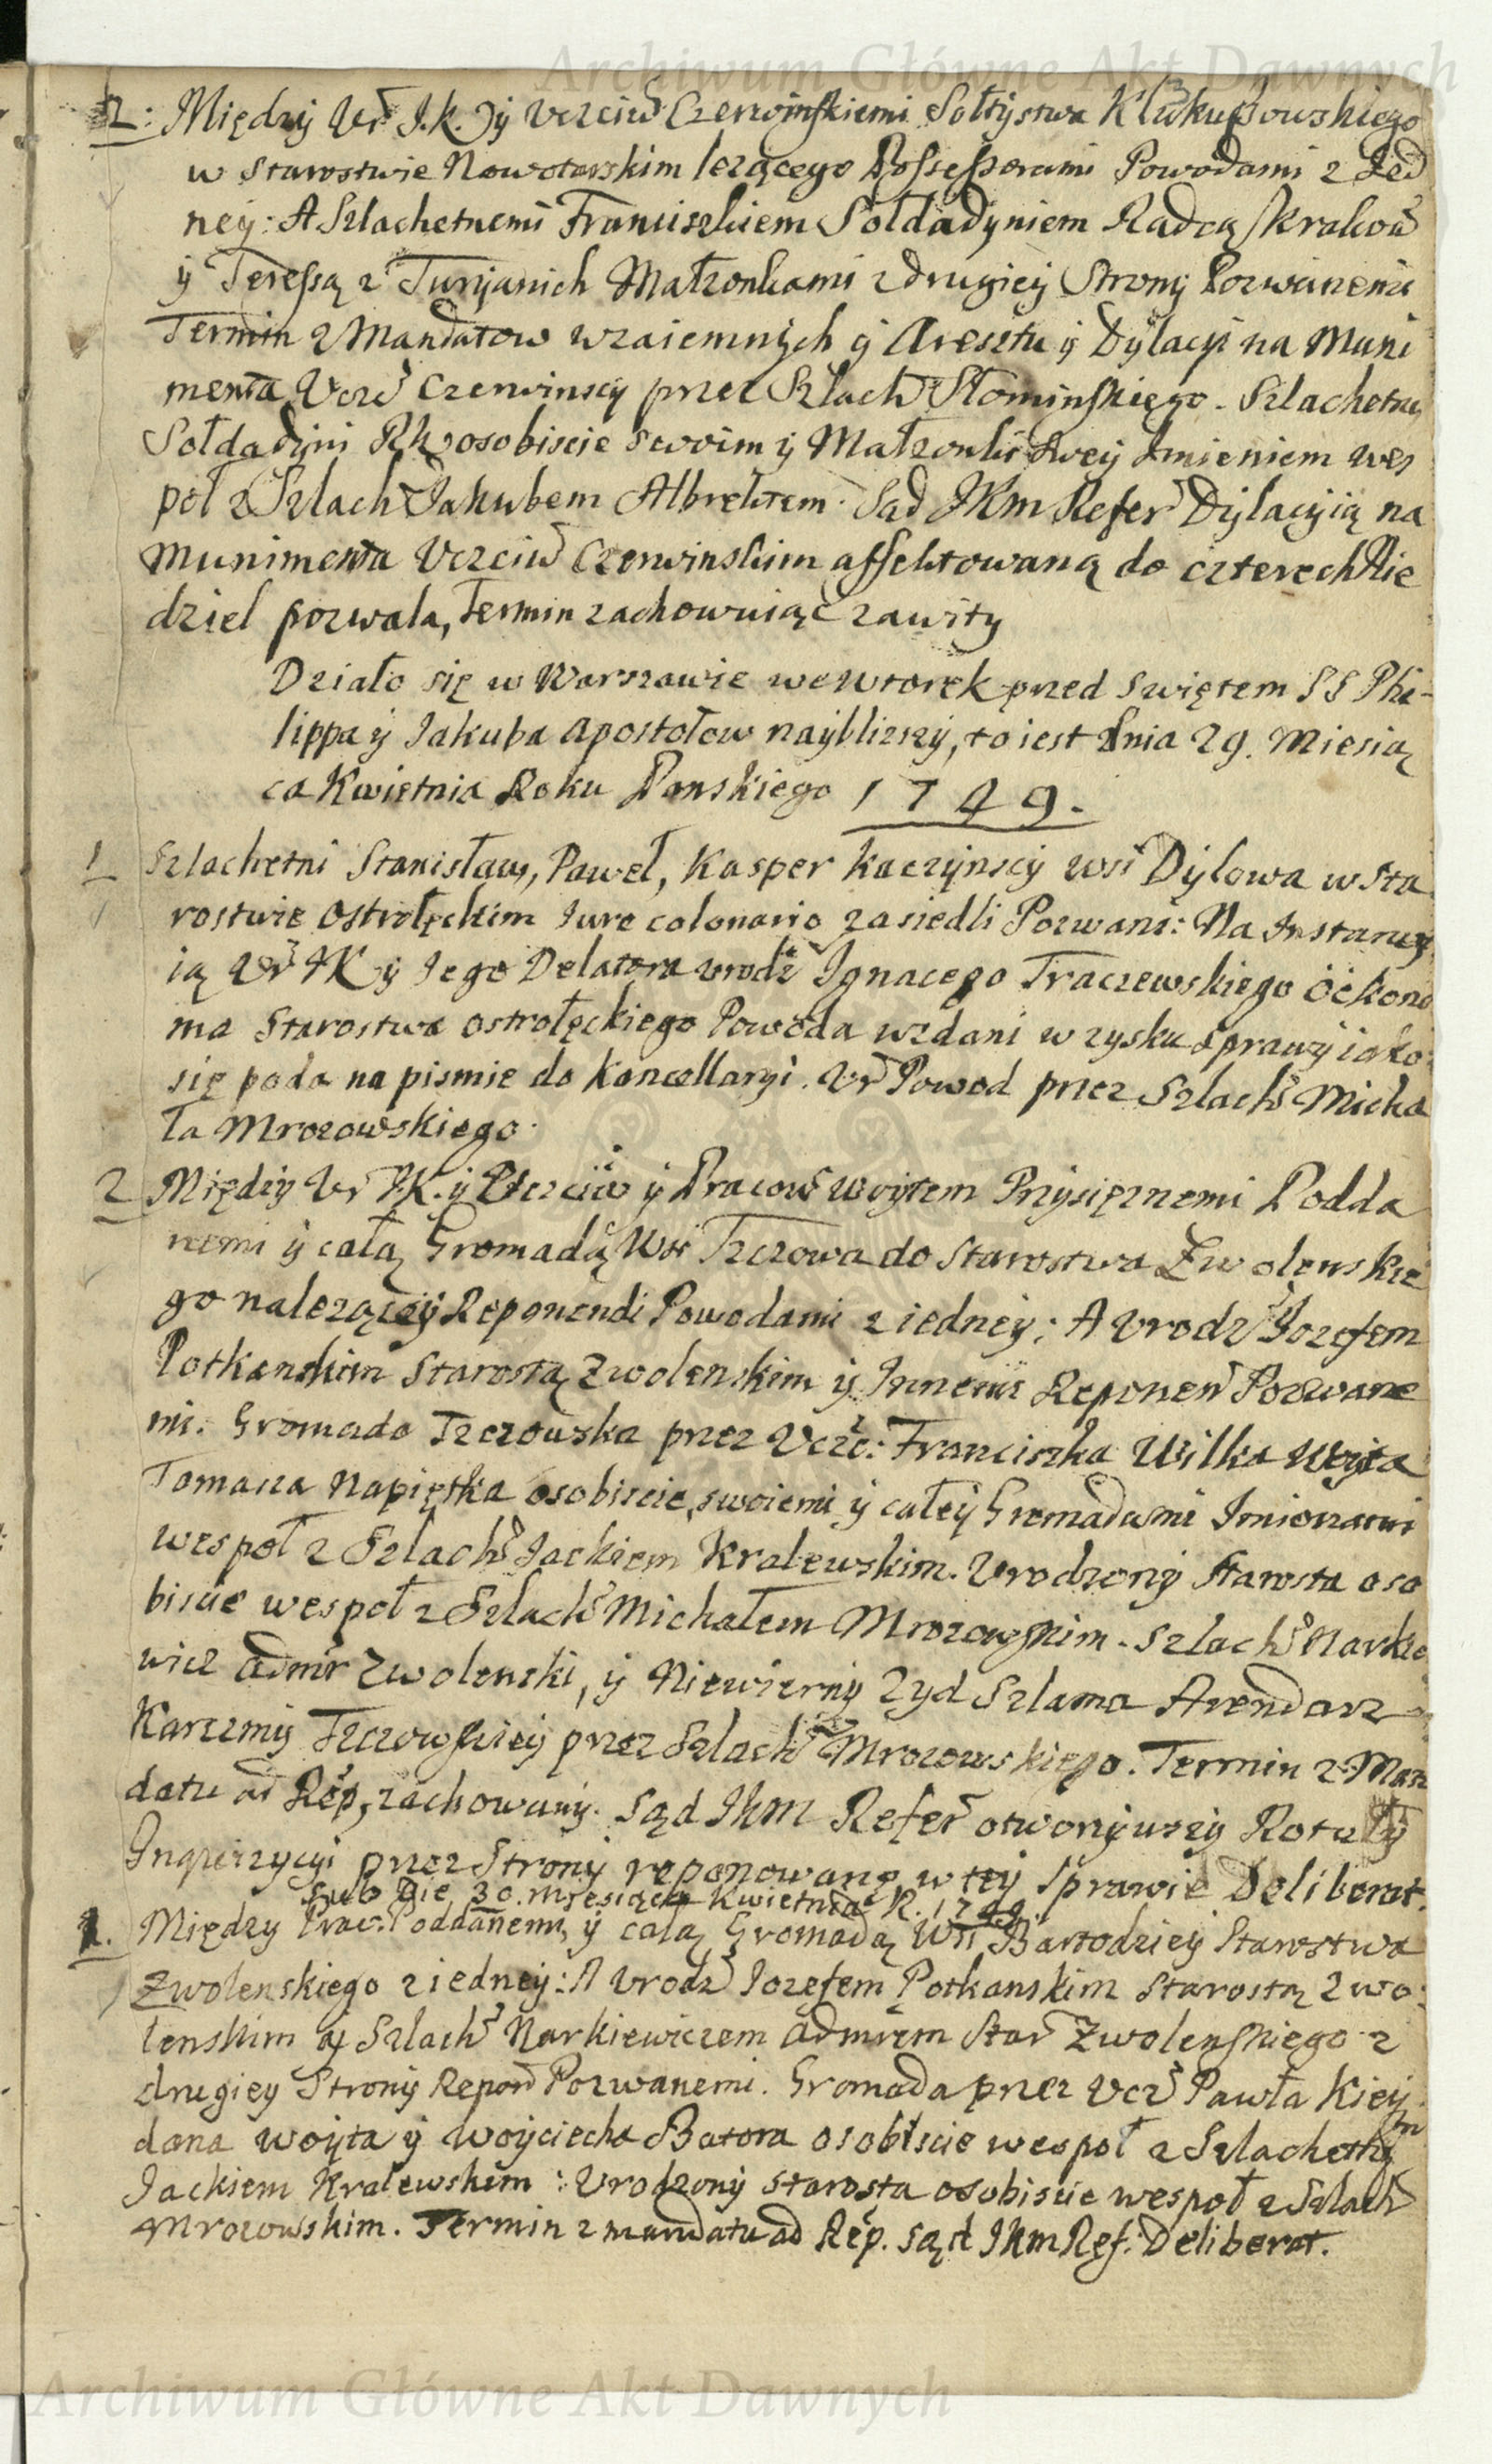 Archiwum Główne Akt Dawnych
2: Między Ur I.K. y Uczciw Czerwinskiemi Sołtystwa Klukuszowskiego
w Starostwie Nowotarskim lezącego Possessorami Powodami z Jed
ney: A Szlachetnemi Franciszkiem Soldadyniem Radcą krakow
y Teressą z Turyanich Małzonkami z drugiey Strony Pozwanemi
Termin z Mandatow wzaiemnych y Aresztu y Dylacyi na Muni
menta Ucz Czerwinscy przez Szlach Słominskiego. Szlachetny
Soldadyni Rk osobiscie swoim y Małzonki swey Imieniem wes
poł z Szlach Jakubem Albrektem. Sąd JKm Refer Dylacyią na
Munimenta Uczciw Czerwinskim affektowaną do czterech Nie
dziel pozwala, Termin zachowuiąc zawity
Działo się w Warszawie we Wtorek przed Swiętem SS Phi-
lippa y Jakuba Apostołow nayblizszy, to iest dnia 29. Miesią
ca Kwietnia Roku Panskiego 1749.
1 Szlachetni Stanisław, Paweł, Kasper Kaczynscy wsi Dylowa w Sta
rostwie Ostrołęckim Jure colonario zasiedli Pozwani: Na Instancy
ią Ur JK y Jego Delatora urodz Ignacego Traczewskiego Oekono
ma Starostwa Ostrołęckiego Powoda wzdani w zysku sprawy iako
się poda na pismie do Kancellaryi. Ur Powod przez Szlach Micha
ła Mrozowskiego.
2 Między Ur J.K. y Uczciw y Pracow Woytem Przysięznemi Podda
nemi y całą Gromadą Wsi Tczowa do Starostwa Zwolenskie
go nalezącey Reponendi Powodami z iedney: A Urodz Jozefem
Potkanskim Starostą Zwolenskim y Innemi Reponen Pozwane
mi. Gromada Tczowska przez Ucz: Franciszka Wilka Woyta
Tomasza Napiętka osobiscie, swoiemi y całey Gromadami Imionami
wespoł z Szlach Jackiem Kralewskim. Urodzony Starosta oso
biscie wespoł z Szlach Michałem Mrozowskim. Szlach Narkie
wicz Admr Zwolenski, y Niewierny Zyd Szlama Arendarz
Karczmy Tczowskiey przez Szlach Mrozowskiego. Termin z Man
datu ad Rep, zachowany. Sąd JKM Refer otworzywszy Rotuły
Inquizycyi przez Strony reponowane w tey Sprawie Deliberat.
Sub die 30. Miesiąca Kwietnia R. 1749.
1. Między Prac. Poddanemi, y całą Gromadą Wsi Bartodziey Starostwa
Zwolenskiego z iedney: A Urodz Jozefem Potkanskim Starostą Zwo
lenskim y Szlach Narkiewiczem Admrem Star Zwolenskiego z
drugiey Strony Repon Pozwanemi. Gromada przez Ucz Pawła Kiey
dana Woyta y Woyciecha Batora osobiscie wespoł z Szlachetnym
Jackiem Kralewskim: Urodzony Starosta osobiscie wespoł z Szlach
Mrozowskim. Termin z mandatu ad Rep. Sąd JKm Ref. Deliberat.
Archiwum Główne Akt Dawnych